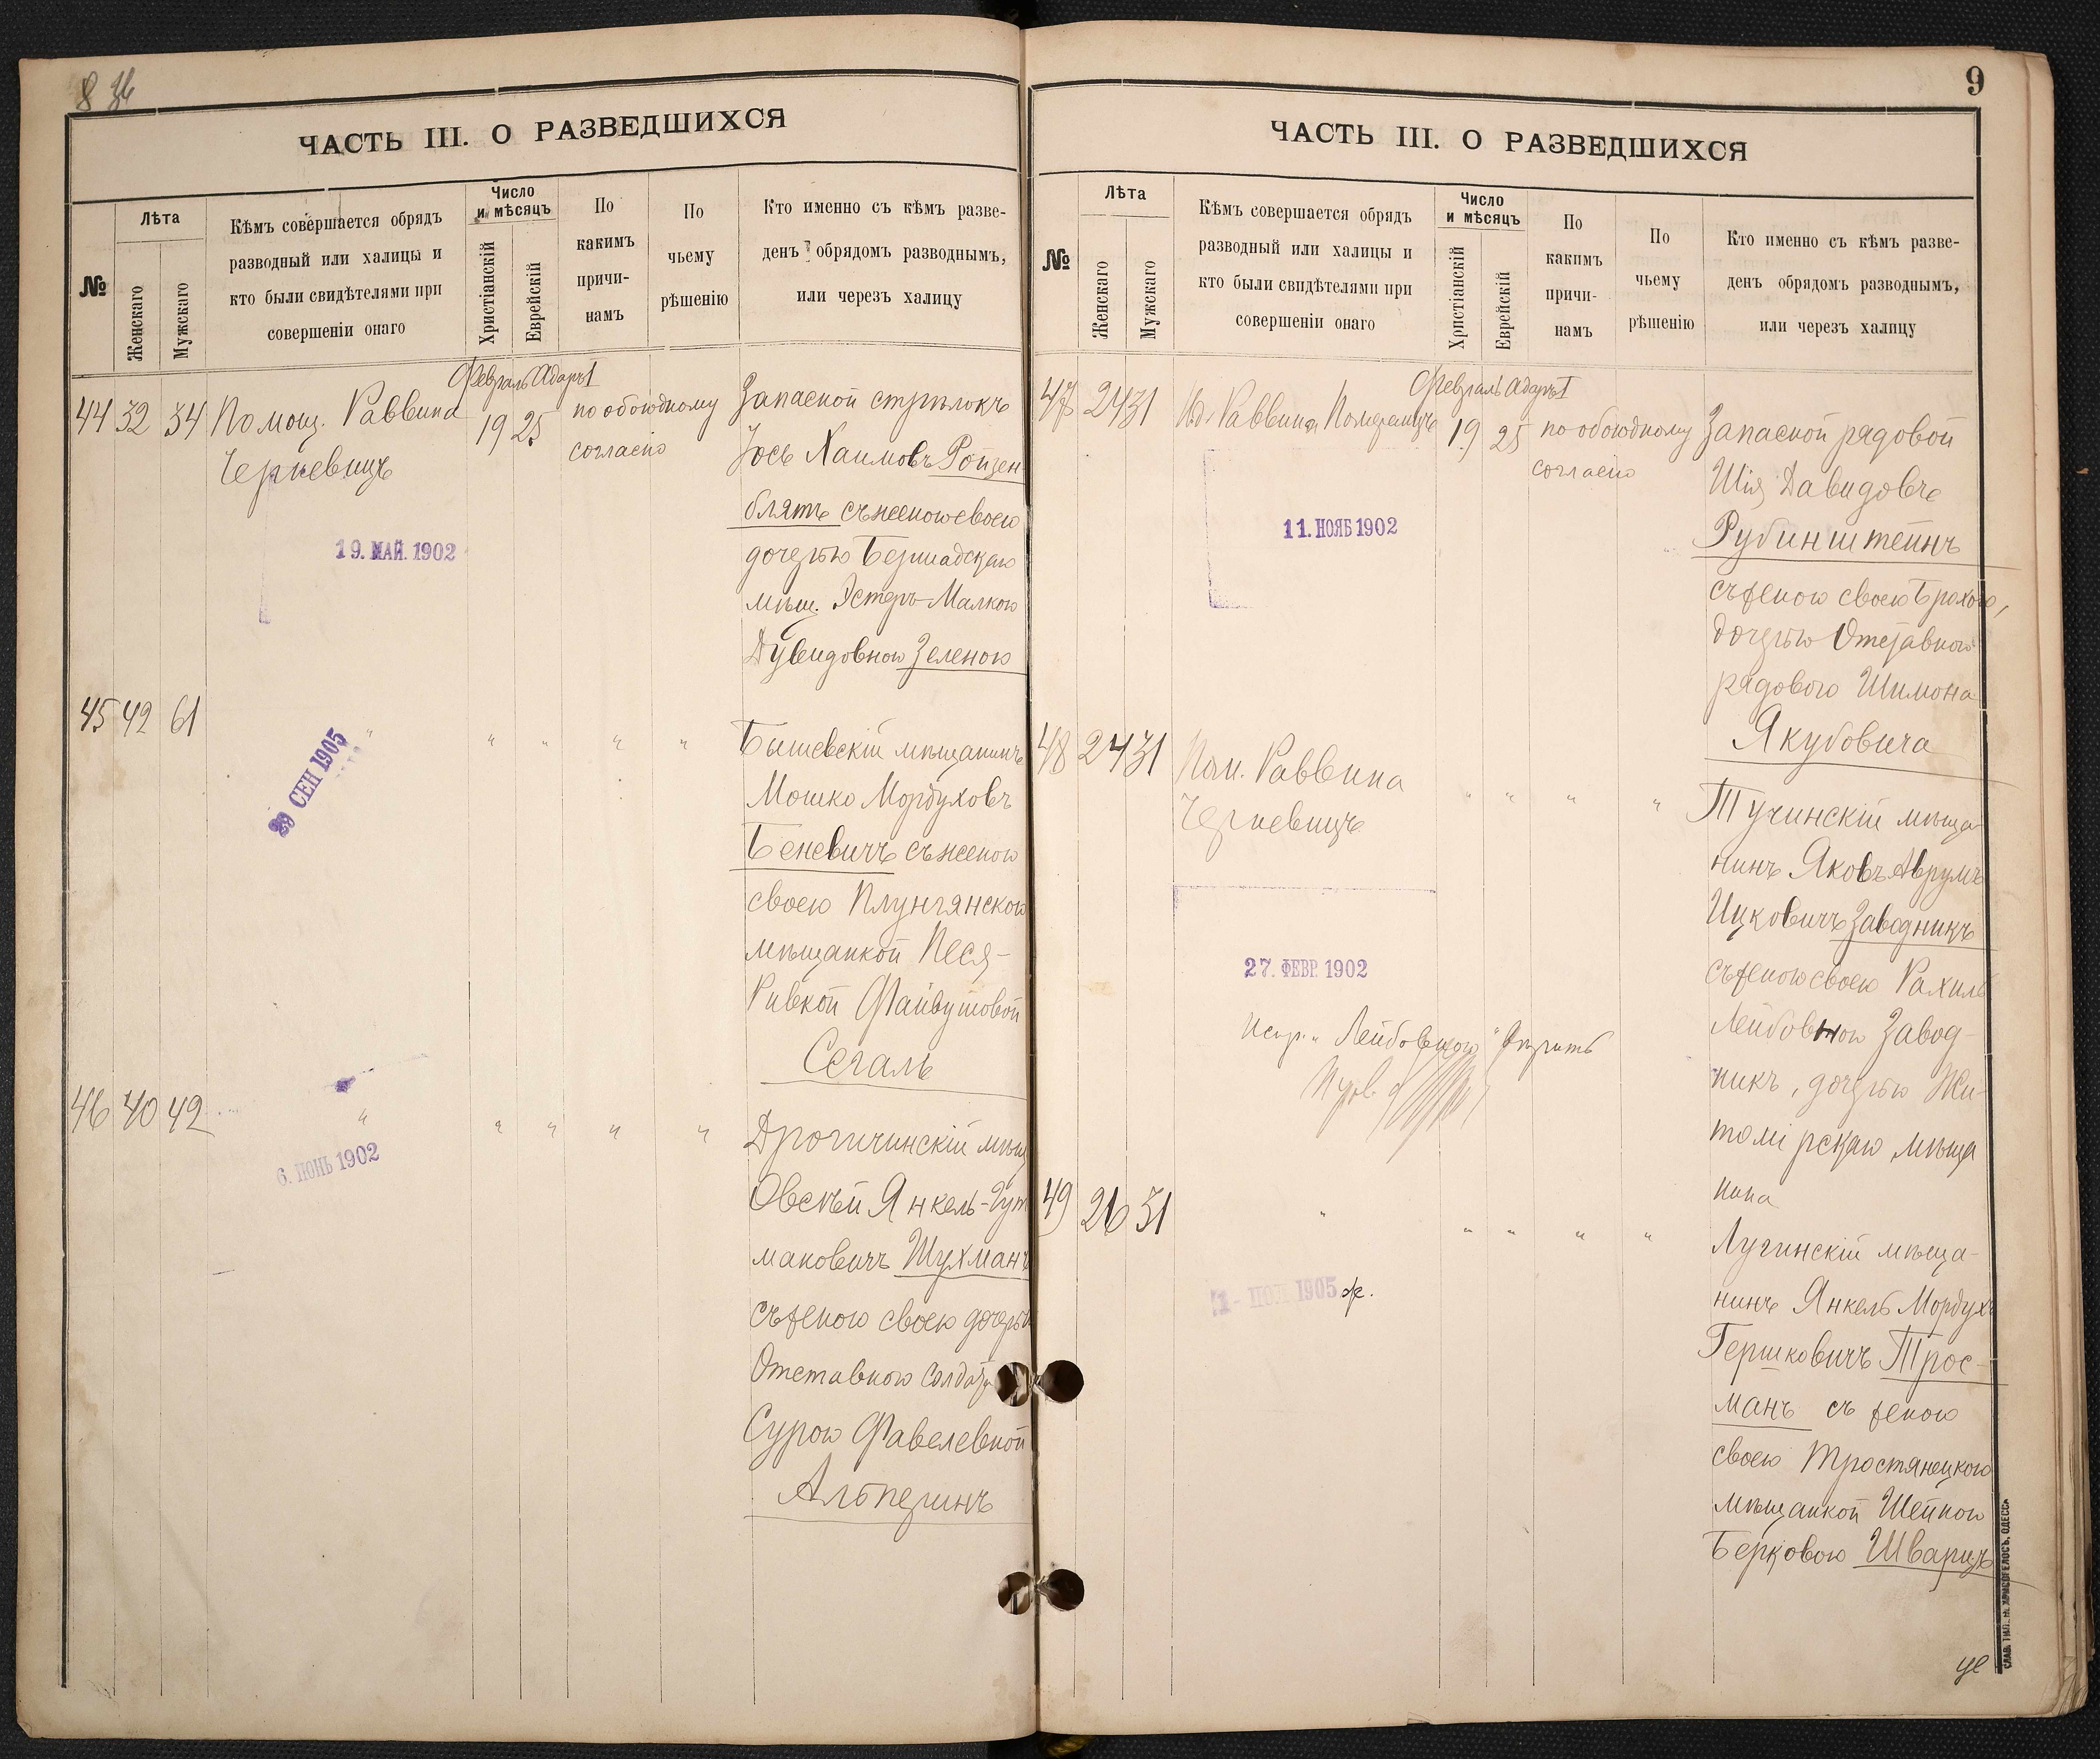 8
ЧАСТЬ III. О РАЗВЕДШИХСЯ
№
Лѣта
Женскаго
Мужскаго
Кѣмъ совершается обрядъ
разводный или халицы и
кто были свидѣтелями при
совершеніи онаго
Число
и мѣсяцъ
Христіанскій
Еврейскій
По
какимъ
причи-
намъ
По
чьему
рѣшенію
Кто именно съ кѣмъ разве-
денъ обрядомъ разводнымъ,
или черезъ халицу
Февраль Адаръ I
44 32 34 Помощ. Раввина 19 25 по обоюдному
Черкевицъ
согласію
19. МАЙ. 1902
Запасной стрѣлокъ
Іось Хаимовъ Ройзен-
блятъ съ женою своею
дочерью Бершадскаго
мѣщ. Эстеръ-Малкою
Дувидовною Зеленою
45 42 61 " " " " "
29 СЕН 1905
Бышевскій мѣщанинъ
Мошко Мордуховъ
Беневичъ съ женою
своею Плунгянскою
мѣщанкой Песя-
Ривкой Файвушовой
Сегаль
46 40 42 " " " " "
6. ІЮНЬ 1902
Дрогичинскій мѣщ
Овсѣй Янкель-Гут
мановичъ Шухманъ
съ женою своею дочерью
Отставного солдата
Сурою Фавелевной
Альперинъ
9
ЧАСТЬ III. О РАЗВЕДШИХСЯ
№
Лѣта
Женскаго
Мужскаго
Кѣмъ совершается обрядъ
разводный или халицы и
кто были свидѣтелями при
совершеніи онаго
Число
и мѣсяцъ
Христіанскій
Еврейскій
По
какимъ
причи-
намъ
По
чьему
рѣшенію
Кто именно съ кѣмъ разве-
денъ обрядомъ разводнымъ,
или черезъ халицу
Февраль Адаръ I
47 24 31 И.д. Раввина Померанцъ 19 25 по обоюдному
согласію
11. НОЯБ 1902
Запасной рядовой
Шія Давидовъ
Рубинштейнъ
съ женою своею Брохою,
дочерью Отставного
рядового Шимона
Якубовича
48 24 31 Пом. Раввина " " " "
Черкевицъ
27. ФЕВР. 1902
Испр. " Лейбовною " вѣрить
Тучинскій мѣща-
нинъ Яковъ Аврумъ
Ицковичъ Заводникъ
съ женою своею Рахиль
Лейбовною Завод-
никъ, дочерью Жи-
томірскаго мѣща
нина
49 26 31 " " " " "
1905
Лугинскій мѣща-
нинъ Янкель Мордухъ
Гершковичъ Трос-
манъ съ женою
своею Тростянецкою
мѣщанкой Шейною
Берковою Шварцъ
СЛАВ. ТИП. Н. ХРИСОГЕЛОСЪ, ОДЕССА